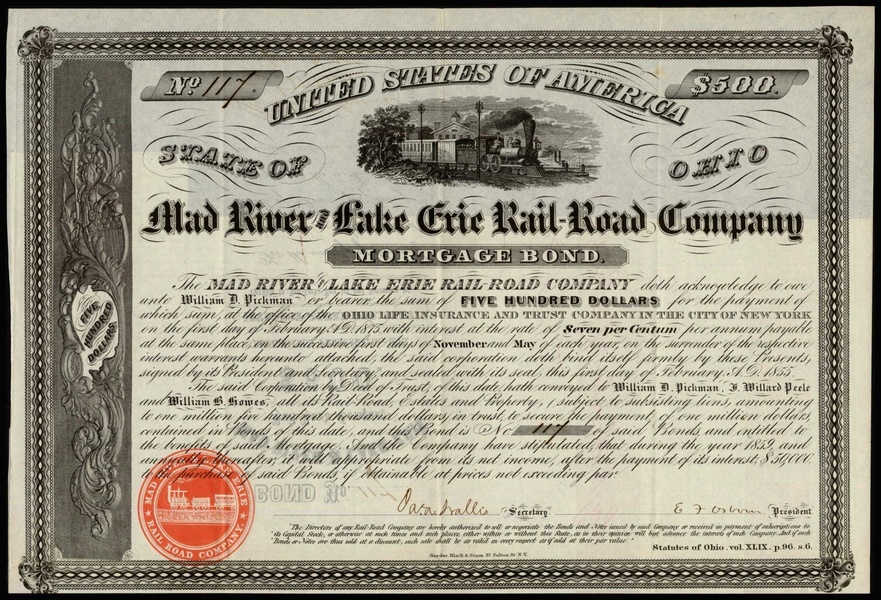 No 117.
UNITED STATES OF AMERICA
$500.
STATE OF OHIO
Mad River and Lake Erie Rail-Road Company
MORTGAGE BOND.
The MAD RIVER & LAKE ERIE RAIL-ROAD COMPANY doth acknowledge to owe
unto William D. Pickman or bearer the sum of FIVE HUNDRED DOLLARS for the payment of
which sum, at the office of the OHIO LIFE INSURANCE AND TRUST COMPANY IN THE CITY OF NEW YORK
on the first day of February A.D. 1875 with interest at the rate of Seven per Centum per annum payable
at the same place, on the successive first days of November and May of each year on the surrender of the respective
interest warrants hereunto attached, the said corporation doth bind itself firmly by these Presents,
signed by its President and Secretary and sealed with its seal this first day of February A.D. 1855.
The said Corporation by Deed of Trust, of this date, hath conveyed to William D. Pickman, F. Willard Peele
and William B. Howes, all its Rail-Road, Estates and Property, (subject to subsisting liens, amounting
to one million five hundred thousand dollars,) in trust, to secure the payment, of one million dollars,
contained in Bonds of this date, and this Bond is No 117 of said Bonds, and entitled to
the benefits of said Mortgage. And the Company have stipulated, that during the year 1859, and
annually thereafter, it will appropriate from its net income, after the payment of its interest, $50,000.
to purchase of said Bonds, if obtainable at prices not exceeding par.
Secretary
President
"The Directors of any Rail-Road Company are hereby authorized to sell or negotiate the Bonds and Notes issued by said Company or received in payment of subscriptions to
its Capital Stock, or otherwise at such times and such places, either within or without this State, as in their opinion will best advance the interests of such Company. And if such
Bonds or Notes are thus sold at a discount, such sale shall be as valid in every respect as if sold at their par value."
Statutes of Ohio. vol. XLIX. p. 96. s. 6.
Snyder Black & Sturn 87 Fulton St. N.Y.
FIVE
HUNDRED
DOLLARS
MAD RIVER AND LAKE ERIE
RAIL ROAD COMPANY.
BOND No 117